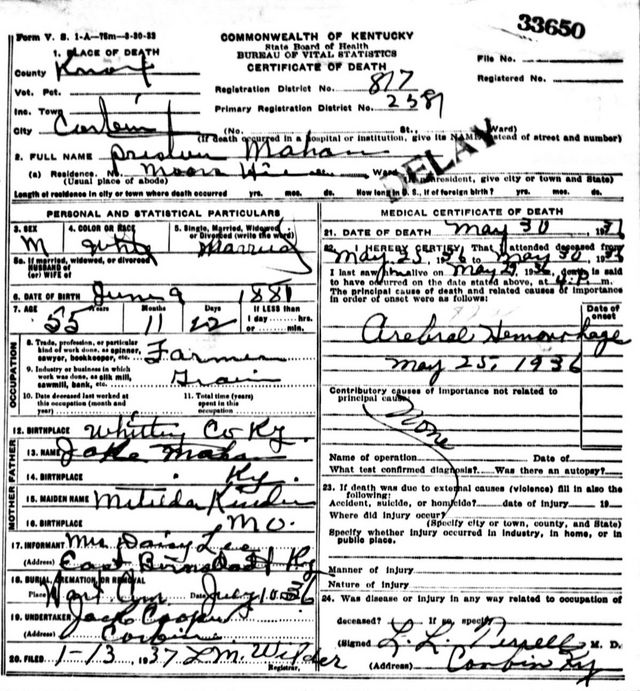 33650
Form V. S. 1-A—75m—8-30-33
COMMONWEALTH OF KENTUCKY
State Board of Health
BUREAU OF VITAL STATISTICS
CERTIFICATE OF DEATH
File No.
Registered No.
1. PLACE OF DEATH
County Knox
Vot. Pct.
Inc. Town
City Corbin
Registration District No. 817
Primary Registration District No. 2381
(No. St., Ward)
(If death occurred in a hospital or institution, give its NAME instead of street and number)
DELAY
2. FULL NAME Mahan
(a) Residence. No. Moore Ward
(Usual place of abode) (If nonresident, give city or town and State)
Length of residence in city or town where death occurred yrs. mos. ds. How long in U. S., if of foreign birth? yrs. mos. ds.
PERSONAL AND STATISTICAL PARTICULARS
3. SEX 4. COLOR OR RACE 5. Single, Married, Widowed
or Divorced (write the word)
M White Married
5a. If married, widowed, or divorced
HUSBAND of
(or) WIFE of
6. DATE OF BIRTH June 9 1881
7. AGE Years Months Days If LESS than
1 day hrs.
or min.
55 11 22
OCCUPATION
8. Trade, profession, or particular
kind of work done, as spinner,
sawyer, bookkeeper, etc. Farmer
9. Industry or business in which
work was done, as silk mill,
sawmill, bank, etc. Grain
10. Date deceased last worked at
this occupation (month and
year)
11. Total time (years)
spent in this
occupation
12. BIRTHPLACE Whitley Co Ky.
MOTHER FATHER
13. NAME Jake Mahan
14. BIRTHPLACE Ky.
15. MAIDEN NAME Matilda
16. BIRTHPLACE Mo.
17. INFORMANT Mrs Daisy Lee
(Address) East Ky
18. BURIAL, CREMATION OR REMOVAL
Place Date
19. UNDERTAKER Jack Cooper
(Address) Corbin
20. FILED 1-13 1937 L.M. Wilder
Registrar.
MEDICAL CERTIFICATE OF DEATH
21. DATE OF DEATH May 30 1936
22. I HEREBY CERTIFY, That I attended deceased from
May 25, 1936 to May 30, 1936
I last saw him alive on May 29, 1936, death is said
to have occurred on the date stated above, at P. m.
The principal cause of death and related causes of importance
in order of onset were as follows:
Date of
onset
Hemorrhage
May 25, 1936
Contributory causes of importance not related to
principal cause:
None
Name of operation Date of
What test confirmed diagnosis? Was there an autopsy?
23. If death was due to external causes (violence) fill in also the
following:
Accident, suicide, or homicide? date of injury 19
Where did injury occur?
(Specify city or town, county, and State)
Specify whether injury occurred in industry, in home, or in
public place.
Manner of injury
Nature of injury
24. Was disease or injury in any way related to occupation of
deceased? If so, specify
(Signed L. L. Terrell M. D.
(Address) Corbin Ky